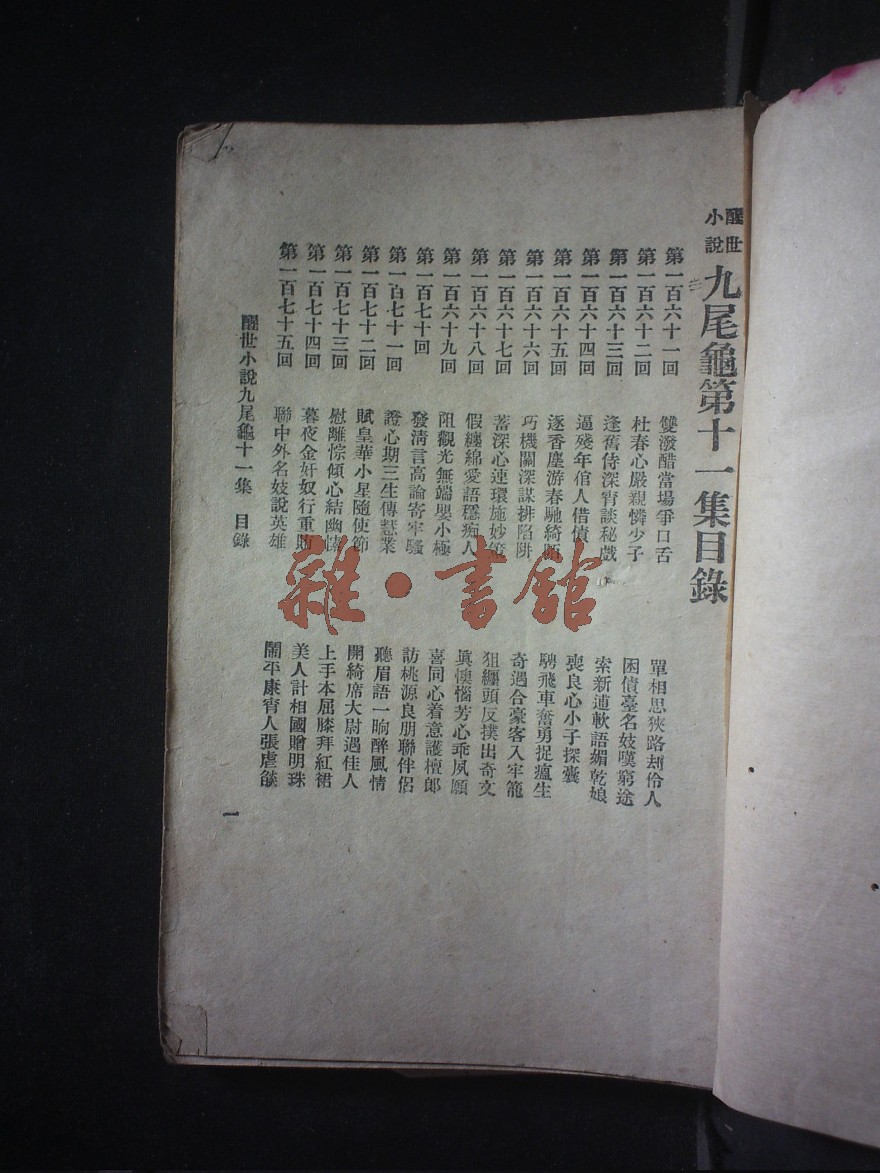 醒世小說 九尾龜第十一集目錄
第一百六十一回 雙潑醋當場爭口舌 單相思狹路刦伶人
第一百六十二回 杜春心嚴親憐少子 困債臺名妓嘆窮途
第一百六十三回 逢舊侍深宵談秘戲 索新逋軟語媚乾娘
第一百六十四回 逼殘年倌人借債 喪良心小子探囊
第一百六十五回 逐香塵游春馳綺陌 騁飛車奮勇捉瘟生
第一百六十六回 巧機關深謀排陷阱 奇遇合豪客入牢籠
第一百六十七回 蓄深心連環施妙 狙纏頭反撲出奇文
第一百六十八回 假纏綿愛語穩痴人 眞懊惱芳心乖夙願
第一百六十九回 阻觀光無端嬰小極 喜同心着意護檀郎
第一百七十回 發清言高論寄牢騷 訪桃源良朋聯伴侶
第一百七十一回 證心期三生傳慧業 聽眉語一晌醉風情
第一百七十二回 賦皇華小星隨使節 開綺席大尉遇佳人
第一百七十三回 慰離悰傾心結幽 上手本屈膝拜紅裙
第一百七十四回 暮夜金奸奴行重賄 美人計相國贈明珠
第一百七十五回 聯中外名妓說英雄 鬧平康宵人張虐燄
醒世小說九尾龜十一集 目錄
一
雜·書館